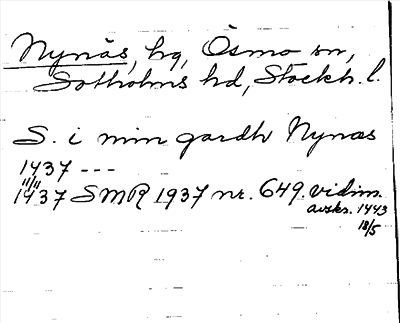 Nynäs, hg, Ösmo sn,
Sotholms hd, Stockh. l.
S. i min gardh Nynæs
1437 ---
11/11
1437 SMR 1937 nr. 649. vidim.
avskr. 1443
18/5